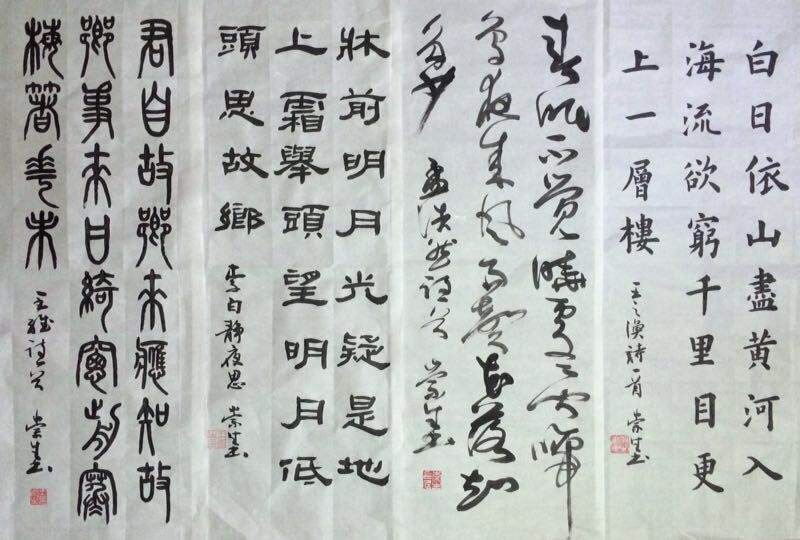 白日依山盡黄河入
海流欲窮千里目更
上一層樓
王之渙詩一首 崇生書
春眠不覺曉處處聞啼
鳥夜來風雨聲花落知
多少
孟浩然詩 崇生書
牀前明月光疑是地
上霜舉頭望明月低
頭思故鄉
李白靜夜思 崇生書
君自故鄉來應知故
鄉事來日綺窻前寒
梅箸花未
王維詩 崇生書